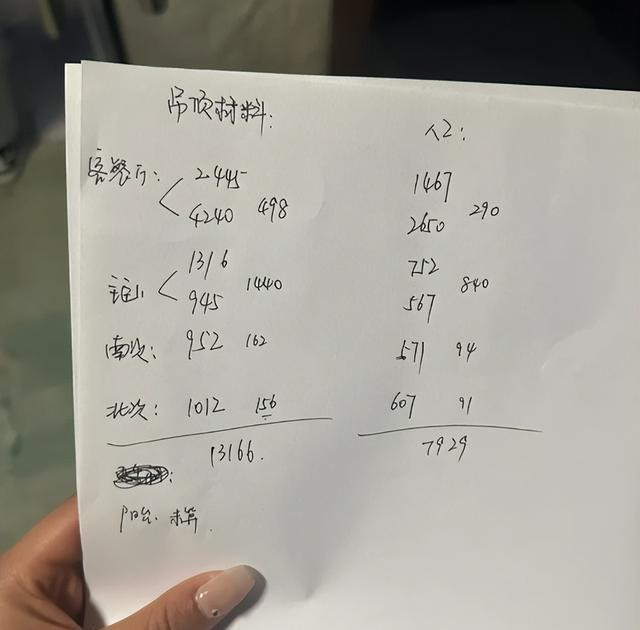 吊顶材料: 人工:
客餐厅: 2445 1467
4240 498 2650 290
1316 752
主卧 945 1440 567 840
南次: 952 162 571 94
北次: 1012 156 607 91
13166. 7929
阳台: 未算.